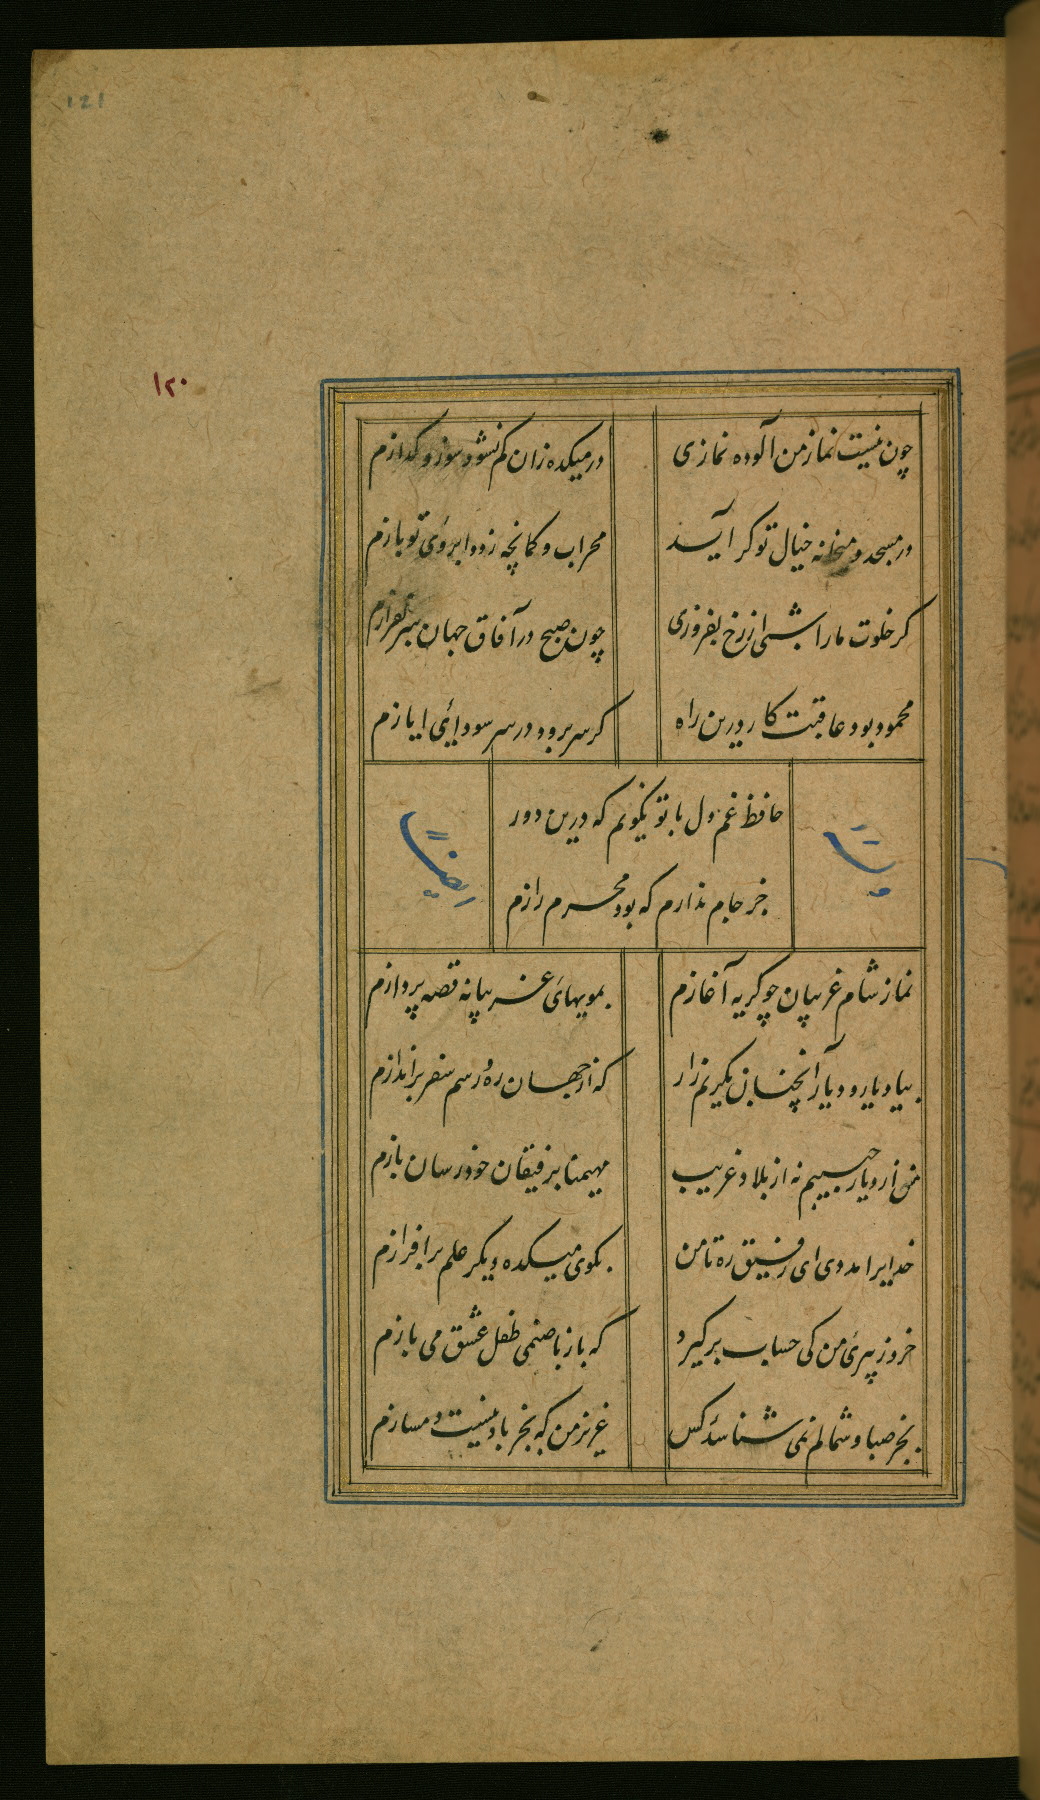 121
۱۲۰
چون نیست نماز من آلوده نمازی
در میکده زان کم نشود سوز و گدازم
در مسجد و میخانه خیال تو گر آید
محراب و کمانچه ز دو ابروی تو بازم
گر خلوت ما را شبی از رخ بفروزی
چون صبح در آفاق جهان سر بفرازم
محمود بود عاقبت کار درین راه
گر سر برود در سر سودائی ایازم
حافظ غم دل با تو نگویم که درین دور
جز جام ندارم که بود محرم رازم
وله
ایضاً
نماز شام غریبان چو گریه آغازم
بمویهای غریبانه قصه پردازم
بیاد یار و دیار آنچنان بگریم زار
که از جهان ره و رسم سفر براندازم
من از دیار حبیبم نه از بلاد غریب
مهیمنا برفیقان خود رسان بازم
خدایرا مددی ای رفیق ره تا من
بکوی میکده دیگر علم برافرازم
خرد ز پیری من کی حساب برگیرد
که باز با صنمی طفل عشق می بازم
بجز صبا و شمالم نمی شناسد کس
عزیز من که بجز باد نیست دمسازم